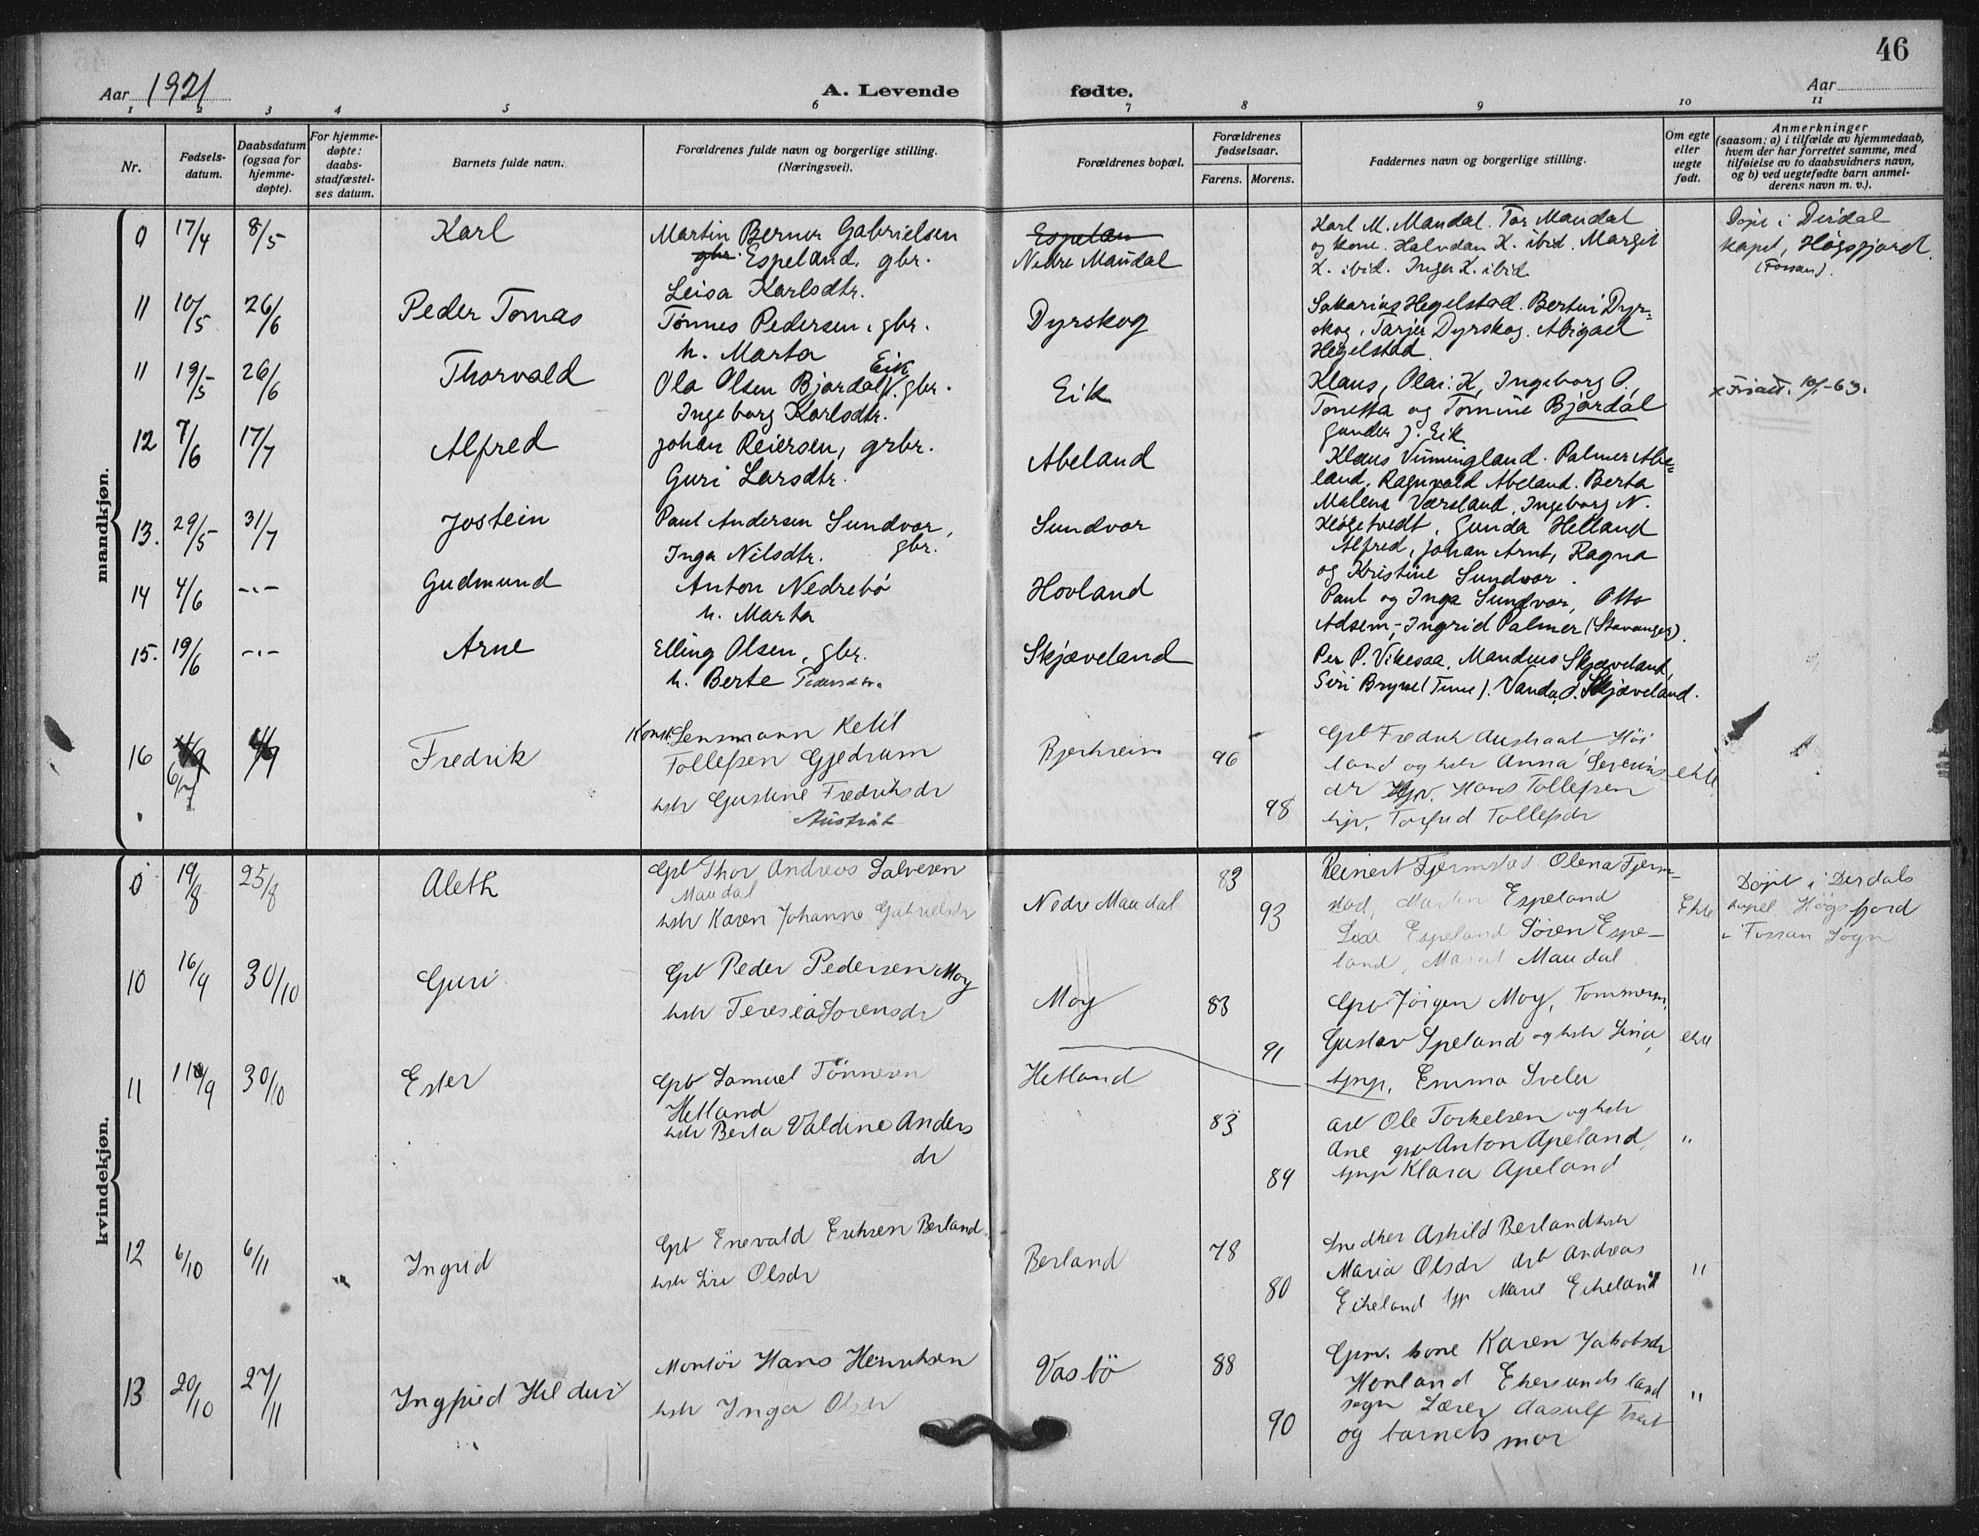 46
Aar 1921
A. Levende fødte.
Aar
1 2 3 4 5 6 7 8 9 10 11
Nr.
Fødsels-
datum.
Daabsdatum
(ogsaa for
hjemme-
døpte).
For hjemme-
døpte:
daabs-
stadfæstel-
ses datum.
Barnets fulde navn.
Forældrenes fulde navn og borgerlige stilling.
(Næringsvei).
Forældrenes bopæl.
Forældrenes
fødselsaar.
Farens. Morens.
Faddernes navn og borgerlige stilling.
Om egte
eller
uegte
født.
Anmerkninger
(saasom: a) i tilfælde av hjemmedaab,
hvem der har forrettet samme, med
tilføielse av to daabsvidners navn,
og b) ved uegtefødte barn anmel-
derens navn m. v.).
mandkjøn.
0 17/4 8/5 Karl
Martin Berner Gabrielsen
gbr. Espeland, gbr.
Leisa Karlsdtr.
Espelan
Nedre Maudal
Karl M. Maudal. Tor Maudal
og kone. Halvdan K. ibid. Margit
K. ibid. Inger K. ibid.
Døpt i Dirdal
kapel, Høgsfjord
(Fossan).
11 10/5 26/6 Peder Tomas
Tønnes Pedersen, gbr.
h. Marta
Dyrskog
Sakarias Hegelstad. Bertin Dyr-
skog, Tarjer Dyrskog. Abigael
Hegelstad.
11 19/5 26/6 Thorvald
Eik
Ola Olsen Bjordal, gbr.
Ingeborg Karlsdtr.
Eik
Klaus, Olai K, Ingeborg O.
Tonetta og Tomine Bjordal
Gunder J. Eik
10/1-63.
12 7/6 17/7 Alfred
Johan Reiersen, grbr.
Guri Larsdtr.
Abeland
Klaus Vinningland. Palmer Abe-
land, Ragnvald Abeland. Berta
Malena Værsland, Ingeborg N.
13. 29/5 31/7 Jostein
Paul Andersen Sundvor,
gbr.
Inga Nilsdtr.
Sundvor
Gunda Helland
Alfred, Johan Arnt, Ragna
og Kristine Sundvor.
14 4/6 -"- Gudmund
Anton Nedrebö
h. Marta
Hovland
Paul og Inga Sundvor, Otto
Adsem, Ingrid Palmer (Stavanger).
15. 19/6 -"- Arne
Elling Olsen, gbr.
h. Berte Pedersdtr.
Skjæveland
Per P. Vikesaa. Mandius Skjæveland,
Siri Bryne (Time). Vanda J. Skjæveland.
16 Fredrik
Konst. Lensmann Ketil
Tollefsen Gjedrem
hstr Gustine Fredriksdr
Austråt
Bjerkreim
96
98
Gpb Fredrik Austraat, Høi
land og hstr Anna Severins
dr Ugpv. Hans Tollefsen
Torfrid Tollefsdr
ekte
kvindekjøn.
0 19/8 25/8 Aleth
Gpb Thor Andreas Salvesen
Maudal
hstr Karen Johanne Gabrielsdr
Nedre Maudal
83
93
Reinert Fjermstad Olena Fjerm-
stad, Martin Espeland
Lisa Espeland Søren Espe-
land, Margit Maudal
Ekte
Døpt i Dirdals
kapel Høgsfjord
Fossan Sogn
10 16/9 30/10 Guri
Gpb Peder Pedersen Moy
hstr Teresia Sorensdr
Moy
83
91
Gpb Jörgen Moy,
Gustav Speland og hstr Sina,
Emma Sveler
ekte
11 30/10 Ester
Gpb Samuel Tönnesen
Hetland
hstr Berta Valdine Anders
dr
Hetland
83
84
arb Ole Torkelsen og hstr
Ane gpb Anton Apeland,
Klara Apeland
"
12 6/10 6/11 Ingrid
Gpb Enevald Eriksen Berland
hstr Siri Olsdr
Berland
78
80
Snedker Askild Berland hstr
Maria Olsdr arb Andreas
Eikeland Marie Eikeland
"
13 20/10 27/11 Ingfried Hildur
Montör Hans Henriksen
hstr Inga Olsdr
Vasbö
88
90
Gpm. kone Karen Jakobsdr
Hovland Ekersunds land
sogn Lærer
og barnets mor
"